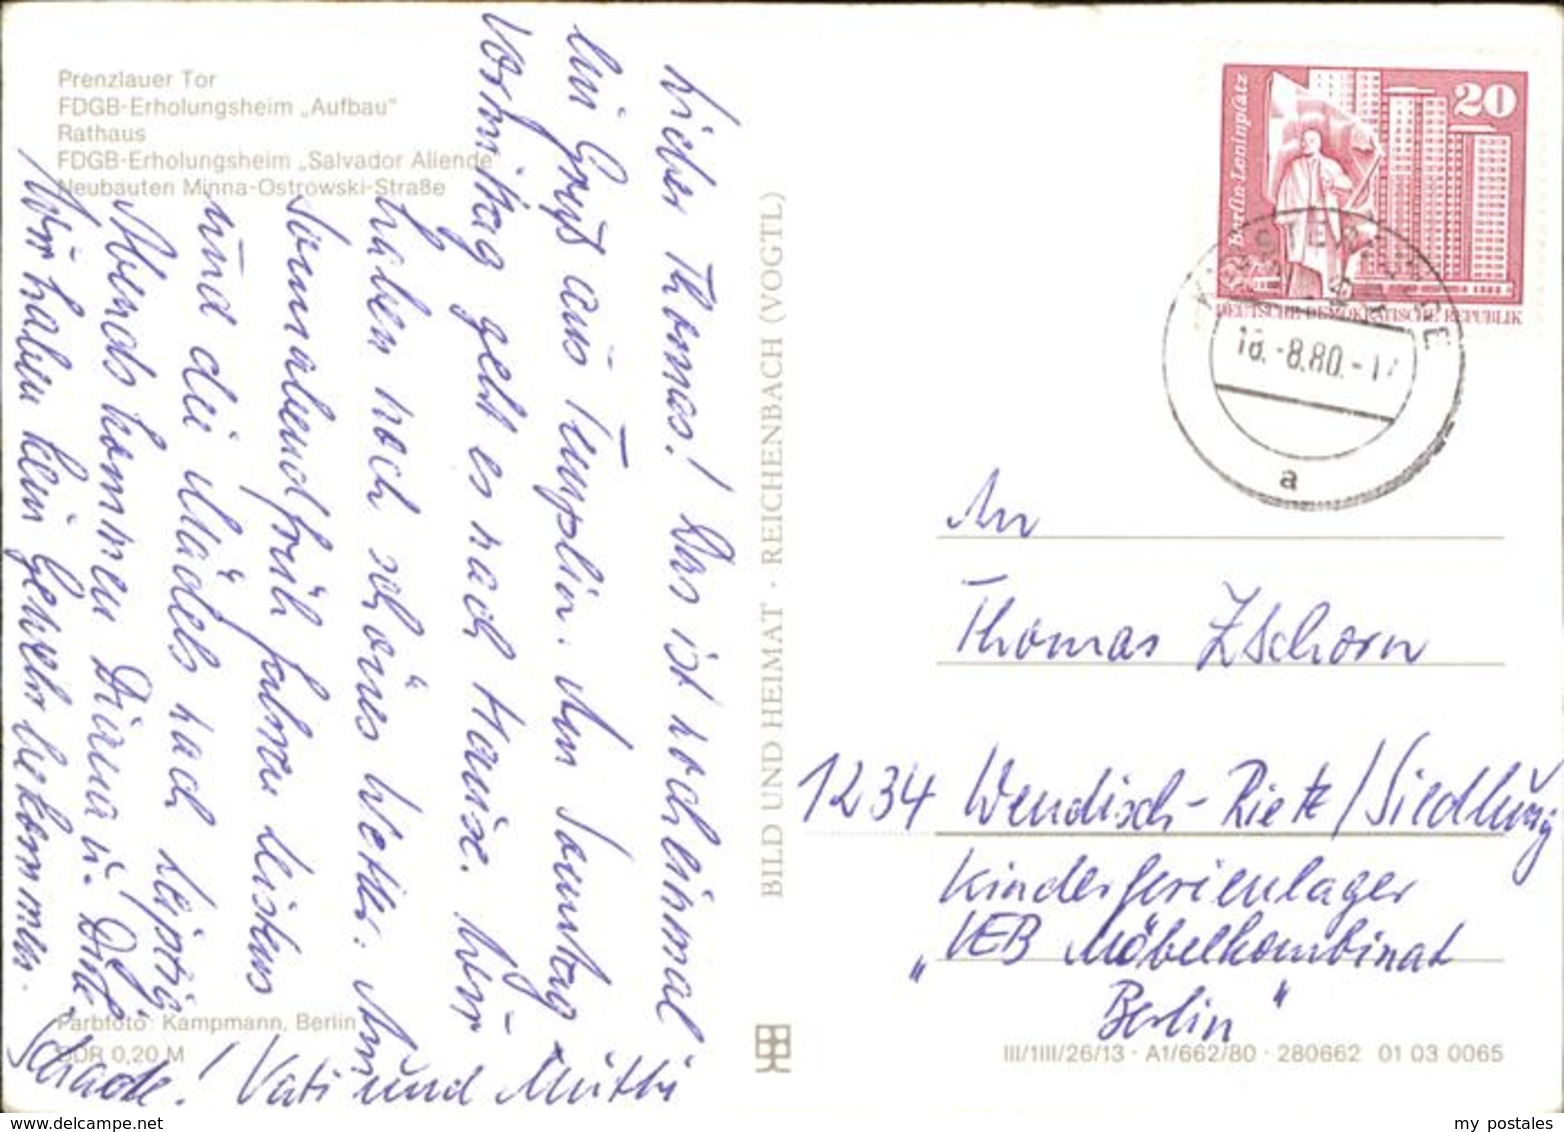 Prenzlauer Tor
FDGB-Erholungsheim „Aufbau"
Rathaus
FDGB-Erholungsheim „Salvador Allende"
Neubauten Minna-Ostrowski-Straße
Lieber Thomas! Das ist noch einmal
ein Gruß aus Templin. Am Sonntag
Vormittag geht es nach Hause. Wir
haben noch schönes Wetter. Am
Sonnabend früh fahren
und die Mädels nach Leipzig
Abends kommen Diana u.
Wir haben kein bekommen.
Schade! Vati und Mutti
Farbfoto: Kampmann, Berlin
DDR 0,20 M
BILD UND HEIMAT · REICHENBACH (VOGTL)
Berlin-Leninplatz
20
DEUTSCHE DEMOKRATISCHE REPUBLIK
18.-8.80.-17
a
An
Thomas Zschorn
1234 Wendisch-Rietz/Siedlung
Kinderferienlager
„VEB Möbelkombinat
Berlin"
III/1III/26/13 · A1/662/80 · 280662 01 03 0065
www.delcampe.net
my postales